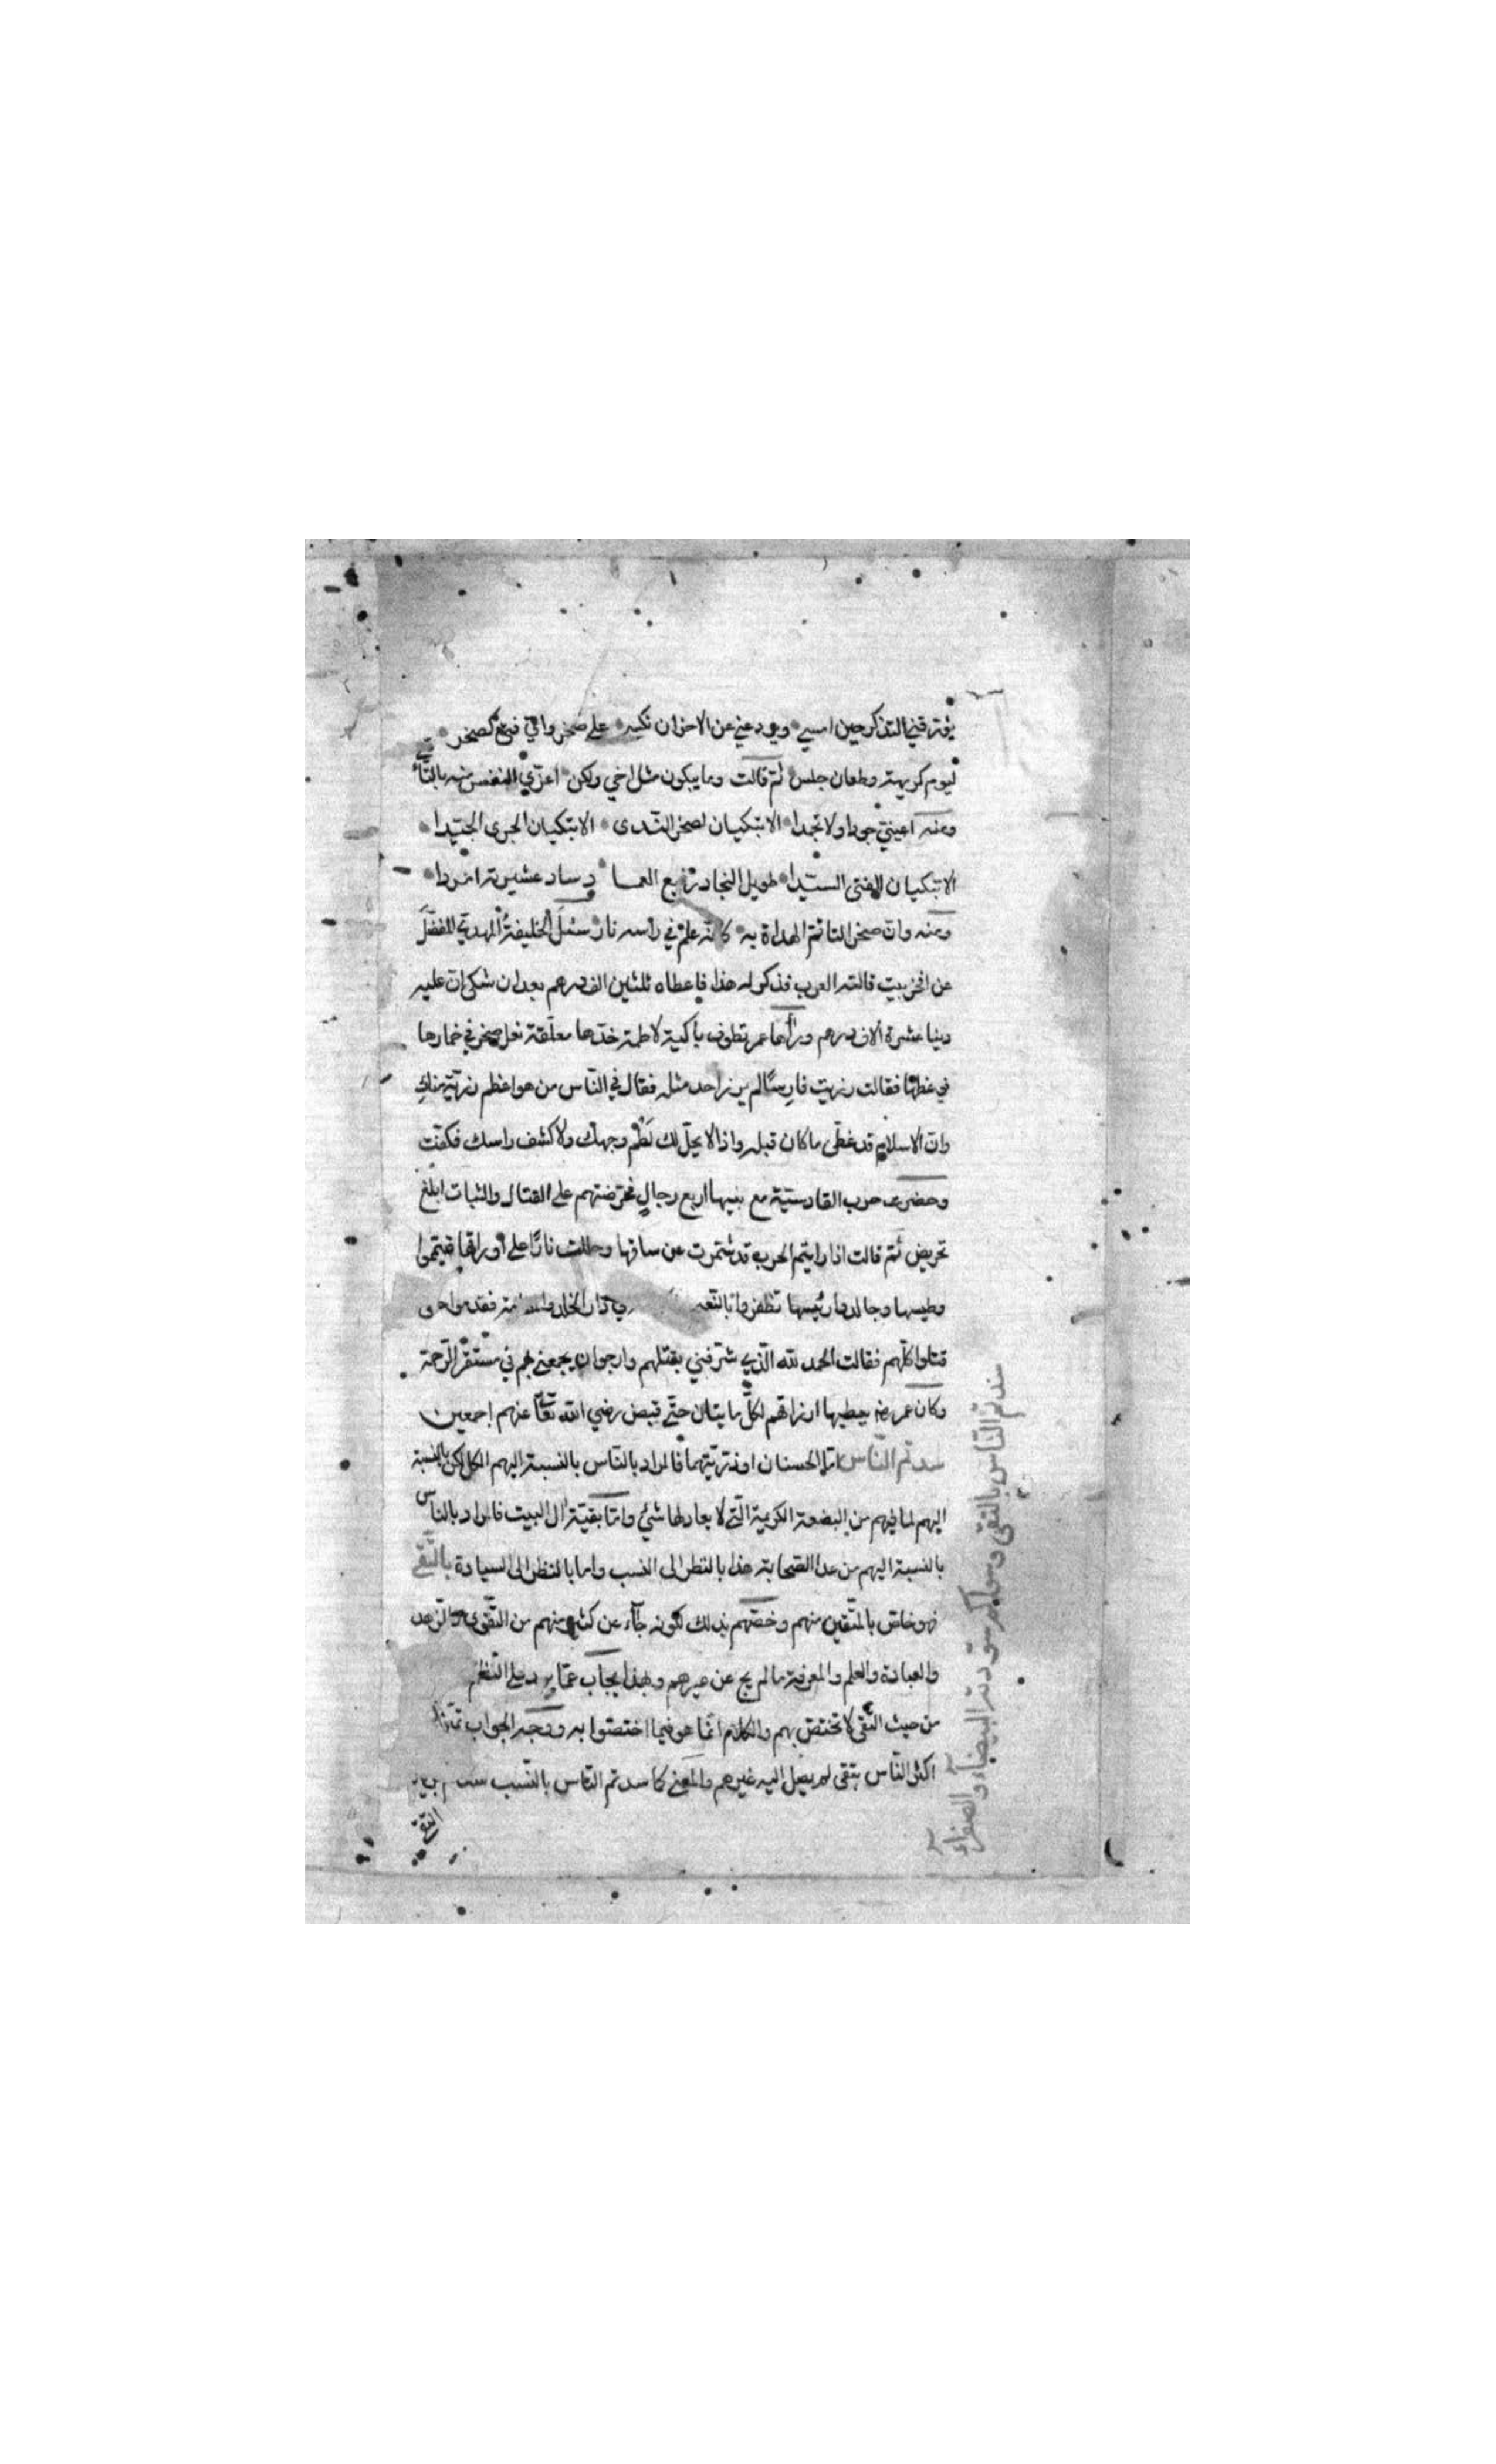 يؤرقني التذكر حين امسي ويردعني عن الاحزان نكسي على صخر واي فتى كصخر
ليوم كريهة وطعان حلس ثم قالت وما يبكون مثل اخي ولكن اعزّي النفس منه بالتأسّي
ومنه اعينيّ جودا ولا تجمدا الا تبكيان لصخر الندى الا تبكيان الجرى الجيدا
الا تبكيان الفتى السيدا طويل النجاد رفيع العما د ساد عشيرته امردا
ومنه وان صخرا لتأتم الهداة به كانه علم في راسه نار سئل الخليفة المهدي المفضل
عن افخر بيت قالته العرب فذكر له هذا فاعطاه ثلثين الف درهم بعدان شكى ان عليه
دينا عشرة الاف درهم ورآها عمر تطوف باكية لاطمة خدها معلقة نعل صخر في خمارها
فوعظها فقالت رزيت فارسا لم يرزا احد مثله فقال في الناس من هو اعظم رزية منك
وان الاسلام قد غطى ما كان قبله واذا لا يحل لك لطم وجهك ولا كشف راسك فكفت
وحضرت حرب القادسية مع بنيها اربع رجال فحرضتهم على القتال والثبات ابلغ
تحريض ثم قالت اذا رايتم الحرب قد شمرت عن ساقها وجللت نارا على اوراقها فتيمموا
وطيسها وجالدوا رئيسها تظفروا بالـ في دار الخلد
قتلوا كلهم فقالت الحمد لله الذي شرفني بقتلهم وارجو ان يجمعني بهم في مستقر الرحمة
وكان عمر رضه يعطيها ارزاقهم لكل مايتان حتى قبض رضي الله تعا عنهم اجمعين
سدتم الناس اما الحسنان او ذريتهما فالمراد بالناس بالنسبة اليهم الكل لكن بالنسبة
اليهم لما فيهم من البضعة الكريمة التي لا يعادلها شئ واما بقية ال البيت فالمراد بالناس
بالنسبة اليهم من عدا الصحابة هذا بالنظر الى النسب واما بالنظر الى السيادة بالتقى
فهو خاص بالمتقين منهم وخصهم بذلك لكونه جآء عن كثير منهم من التقوى والزهد
والعبادة والعلم والمعرفة ما لم يجئ عن غيرهم وبهذا يجاب عما يرد على النظم
من حيث التقى لا تختص بهم والكلام انما هو فيما اختصوا به ووجه الجواب
اكثر الناس بتقى لم يصل اليه غيرهم والمعنى كما سدتم الناس بالنسب
التقى
سدتم الناس بالتقى وسواكم سودته البيضآء والصفرآء